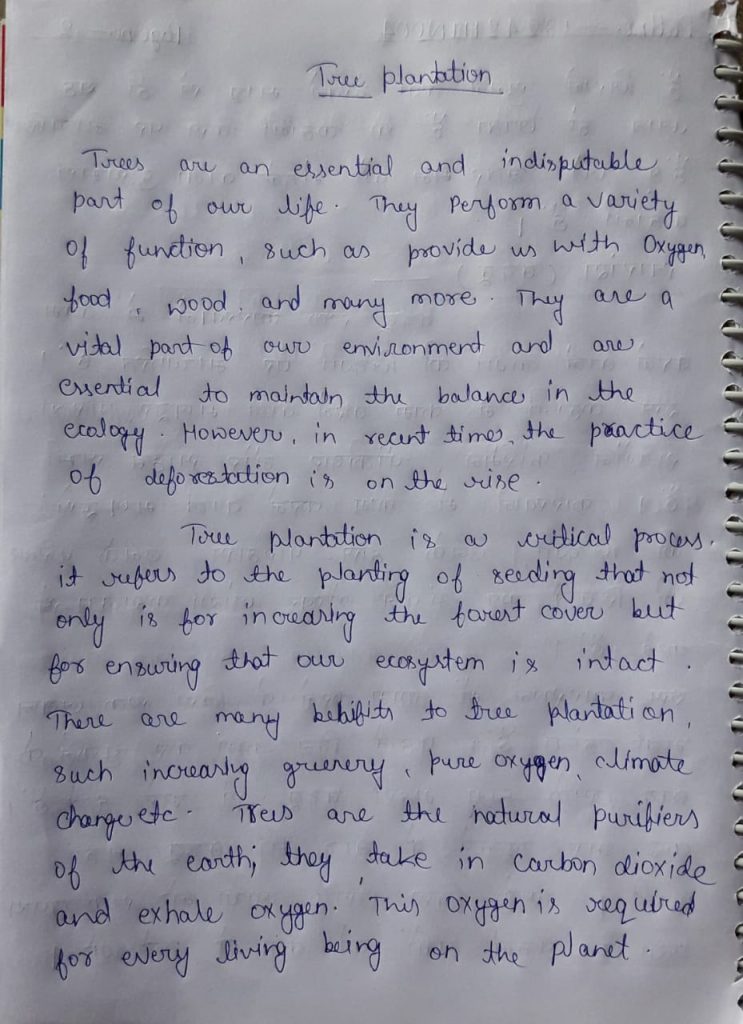 Tree plantation
Trees are an essential and indisputable
part of our life. They Perform a variety
of function, such as provide us with Oxygen,
food, wood, and many more. They are a
vital part of our environment and are
essential to maintain the balance in the
ecology. However, in recent time, the practice
of deforestation is on the rise.
Tree plantation is a critical process.
it refers to the planting of seeding that not
only is for increasing the farest cover but
for ensuring that our ecosystem is intact.
There are many bebifits to tree plantation,
such increasing greenery, pure oxygen, climate
change etc. Trees are the natural purifiers
of the earth; they take in carbon dioxide
and exhale oxygen. This oxygen is required
for every living being on the planet.